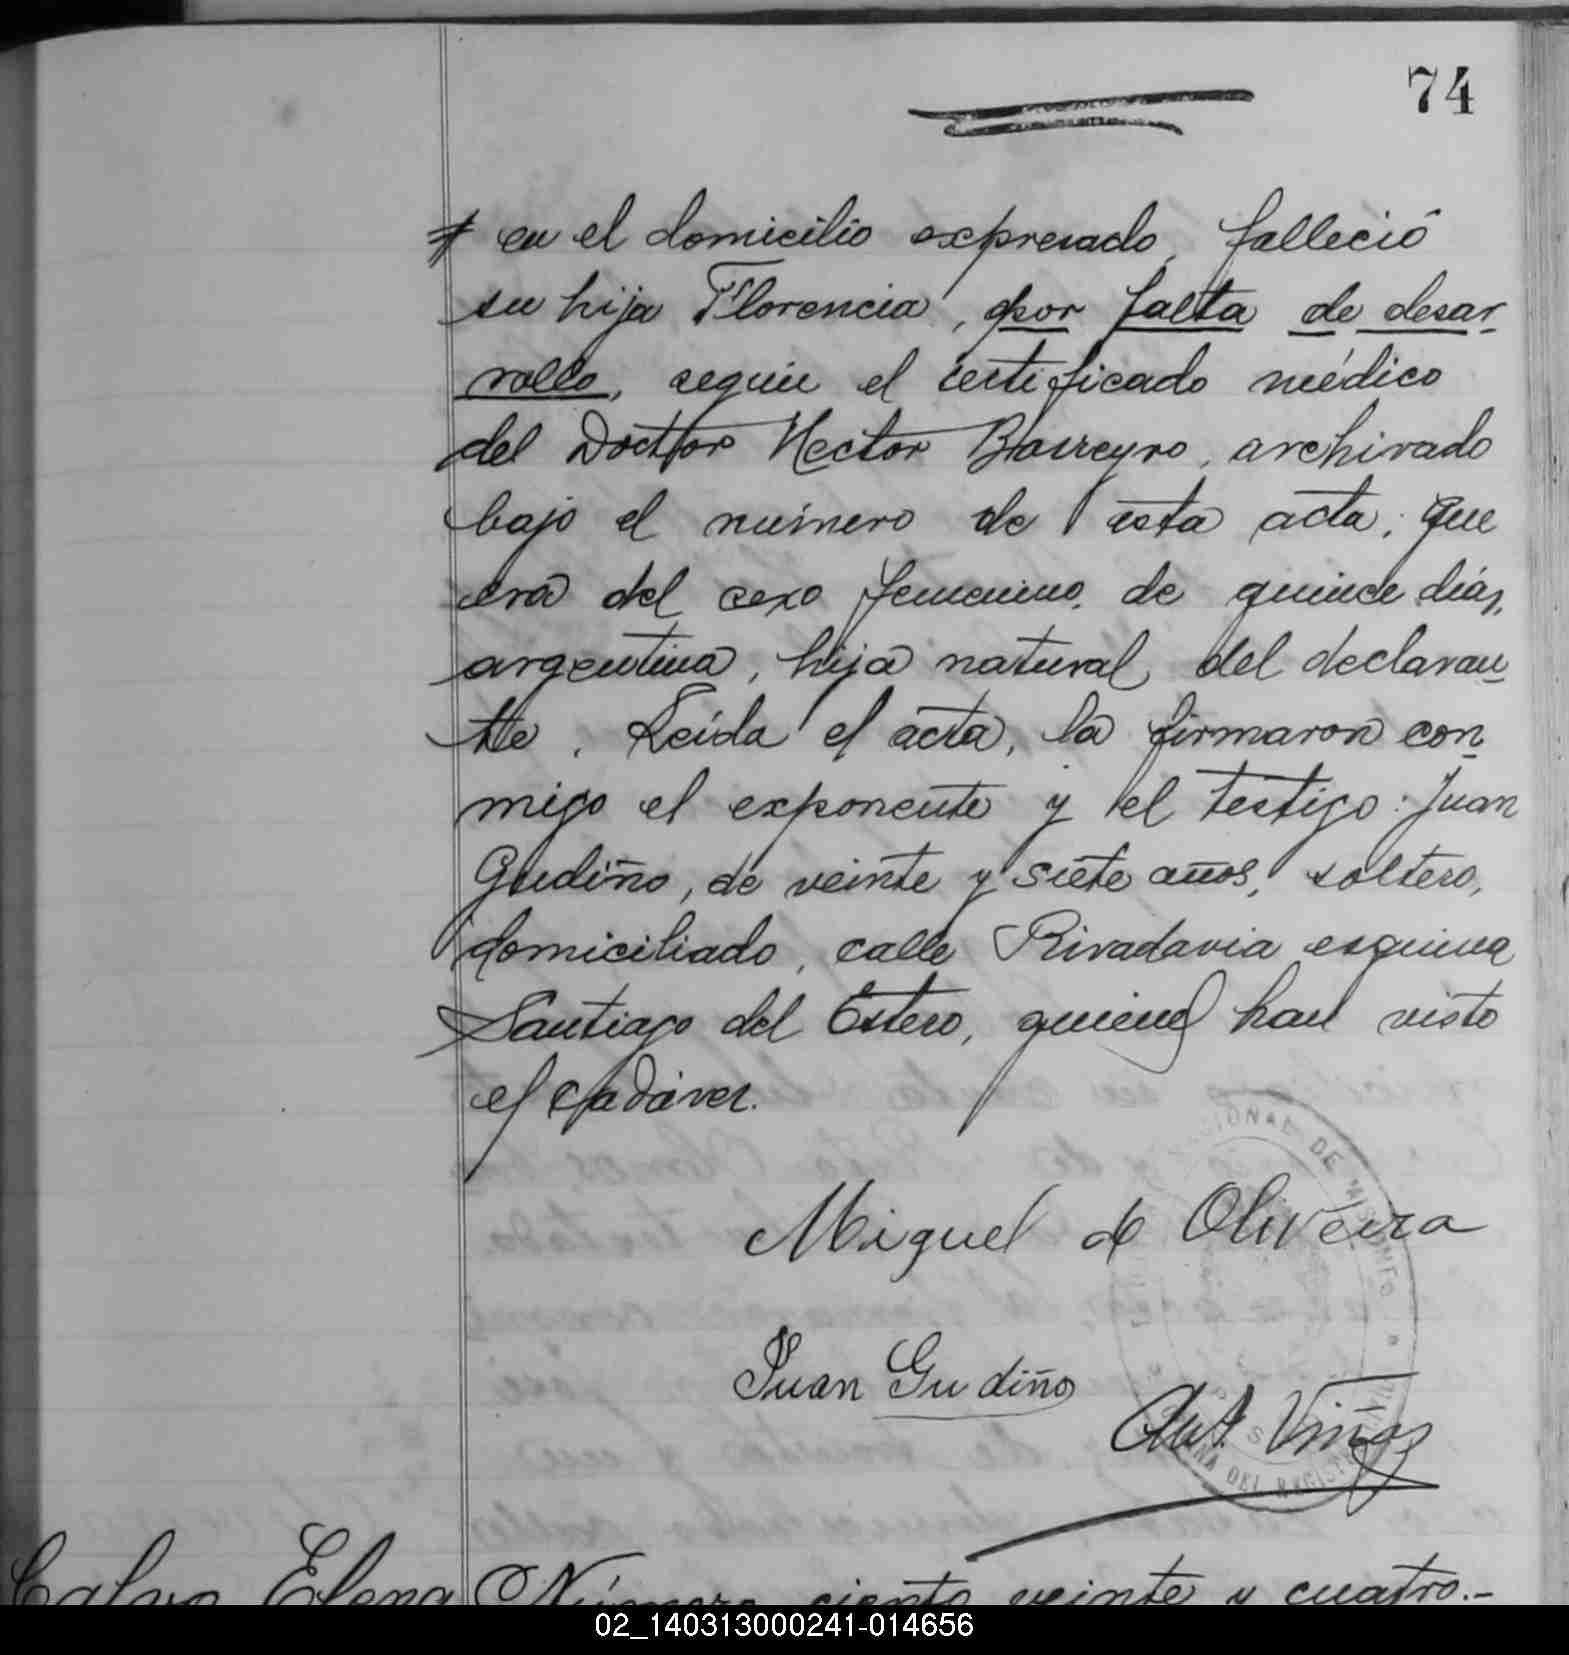 74
en el domicilio expresado, falleció
su hija Florencia, por falta de desar-
rollo, según el certificado médico
del Doctor Hector Barreyro, archivado
bajo el número de esta acta; que
era del sexo femenino, de quince días,
argentina, hija natural del declaran-
te. Leída el acta, la firmaron con-
migo el exponente y el testigo: Juan
Gudiño, de veinte y siete años, soltero,
domiciliado, calle Rivadavia esquina
Santiago del Estero, quienes han visto
el cadáver.
Miguel de Oliveira
Juan Gudiño
Ant. Viñas
Calvo Elena
Número ciento veinte y cuatro.-
02_140313000241-014656